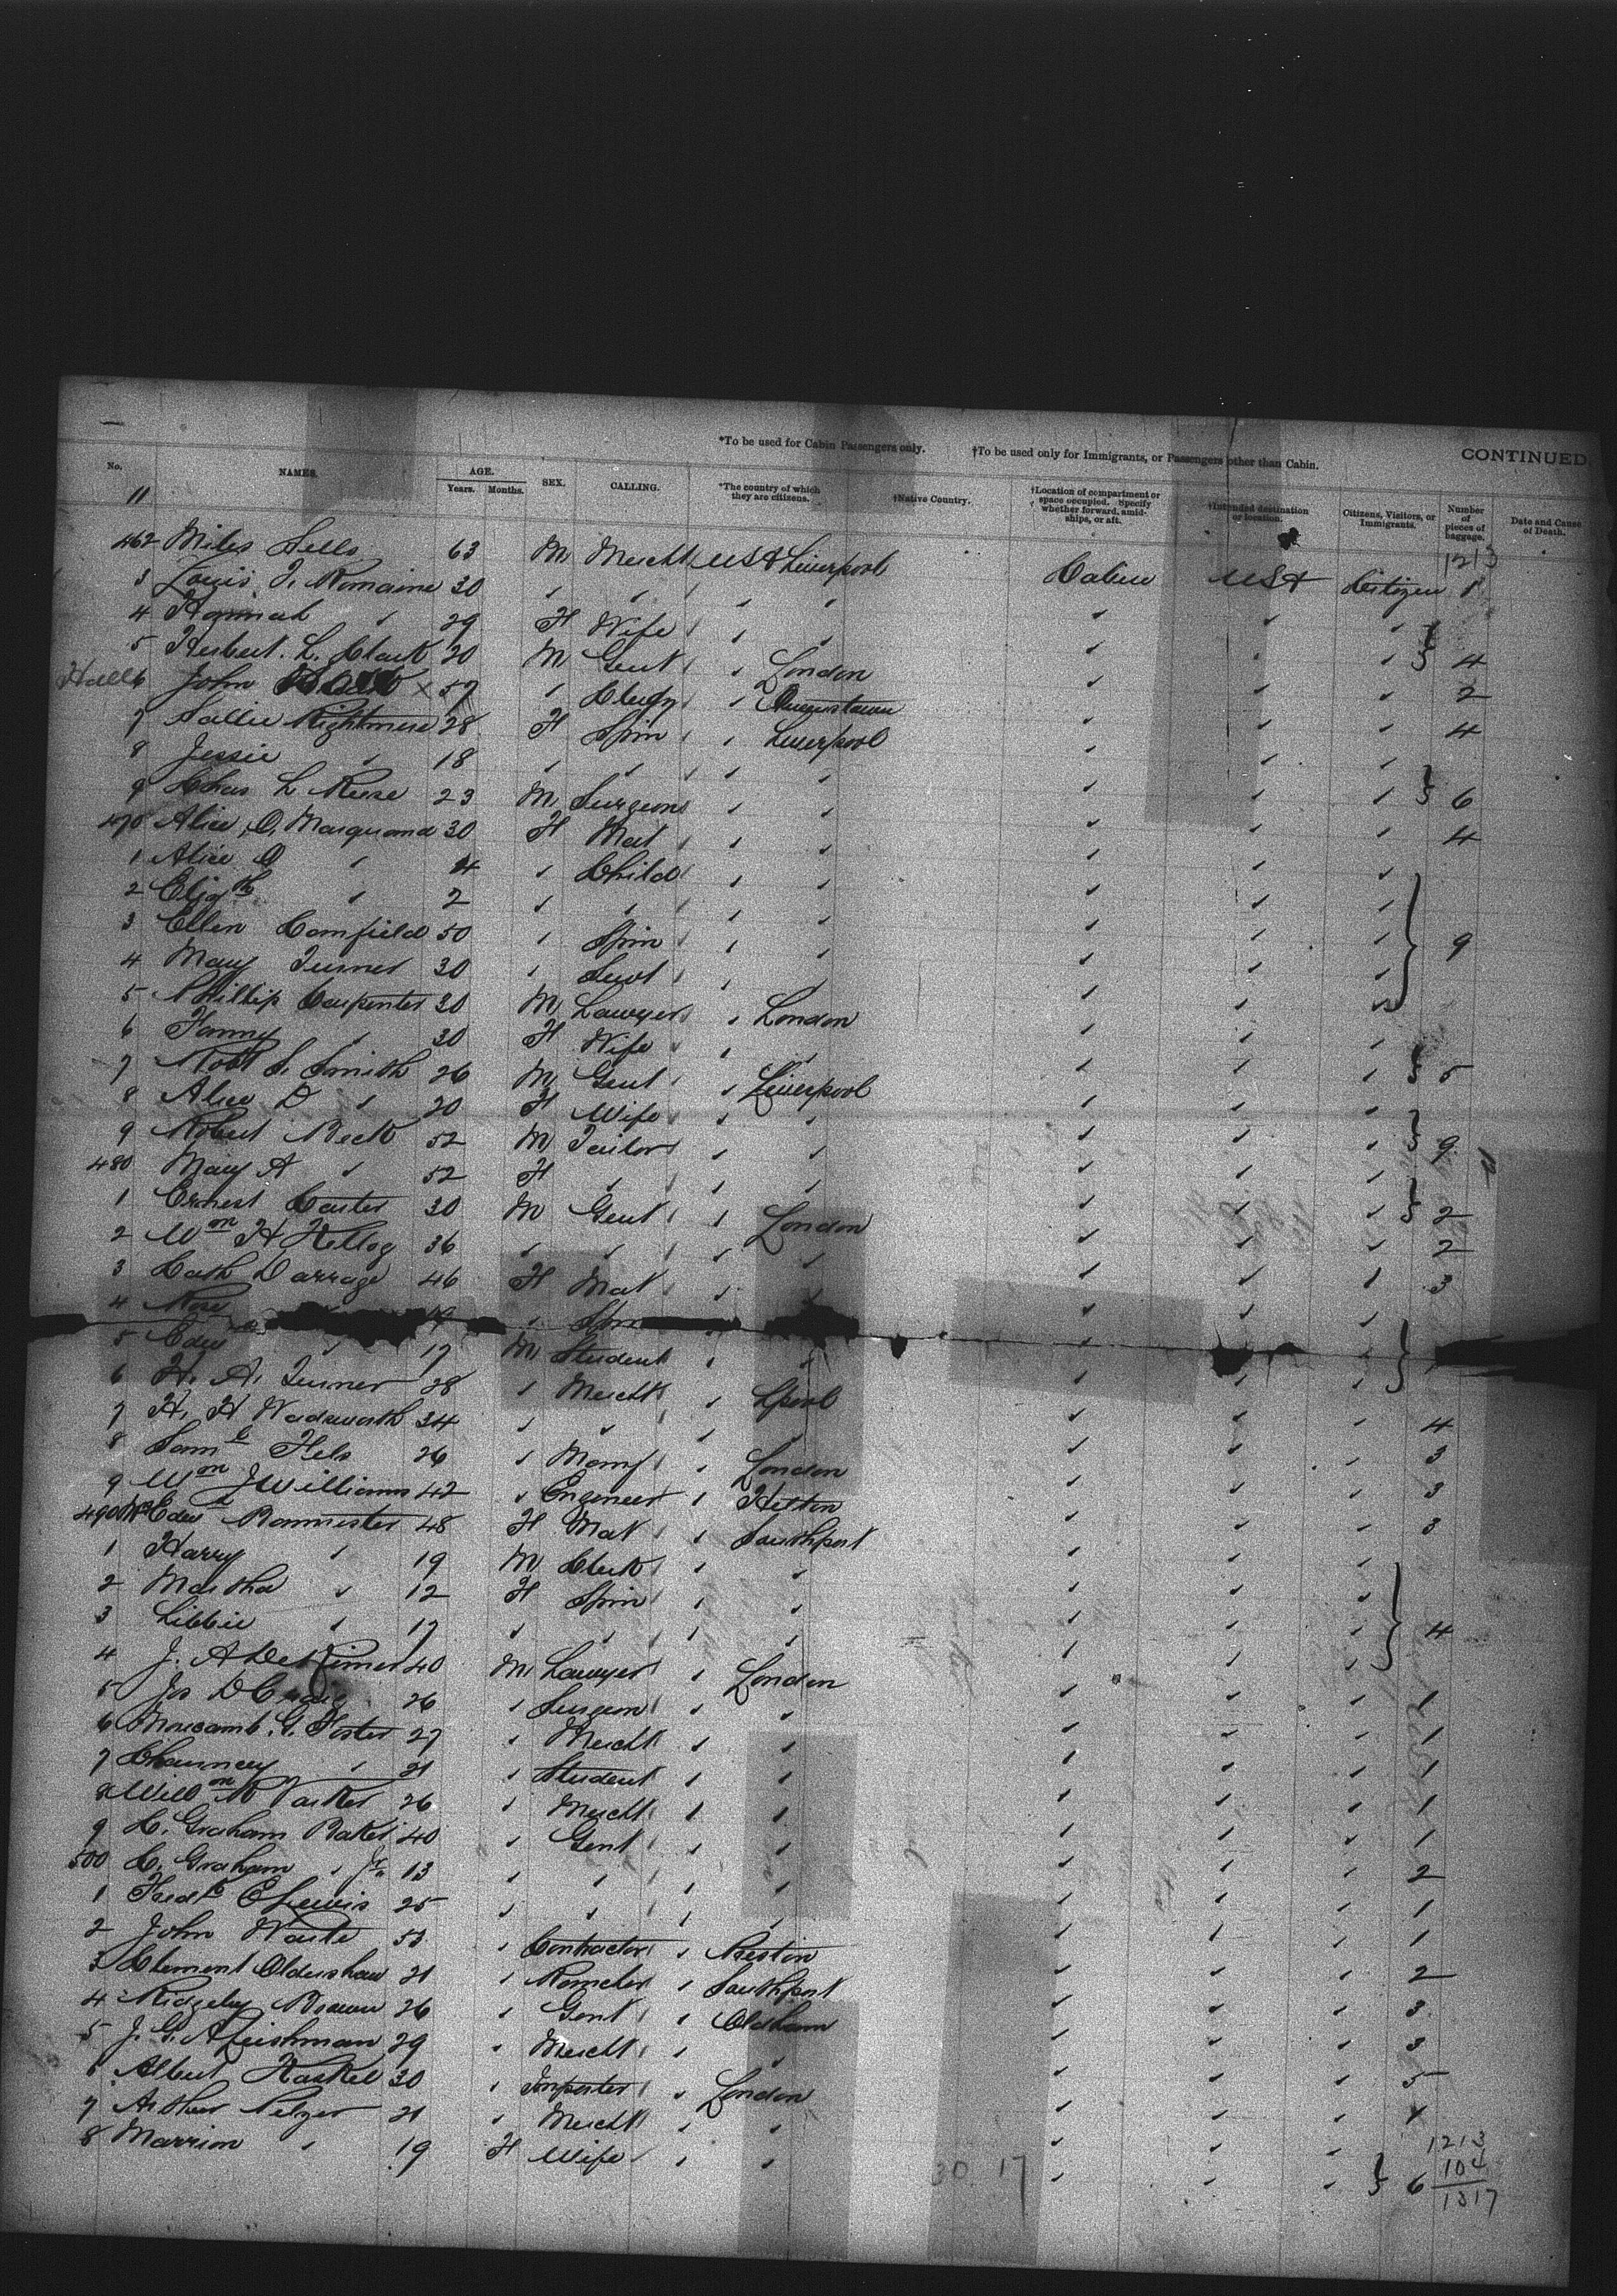 *To be used for Cabin Passengers only. †To be used only for Immigrants, or Passengers other than Cabin. CONTINUED.
No. NAMES. AGE. Years. Months. SEX. CALLING. *The country of which they are citizens. †Native Country. †Location of compartment or space occupied. Specify whether forward, amidships, or aft. †Intended destination or location. Citizens, Visitors, or Immigrants. Number of pieces of baggage. Date and Cause of Death.
11 1213
462 Miles Sells 63 M Mercht USA Liverpool Cabin USA Citizen 1
3 Louis T. Romaine 30 " " " "
4 Hannah " 29 F Wife " " 4
5 Herbert L. Clark 20 M Gent " London 2
Hall 6 John x 57 " Clergy " Queenstown 4
7 Sallie Rightmire 28 F Spin " Liverpool
8 Jessie " 18 " " " " 6
9 Chas L Reese 23 M Surgeon " " 4
470 Alice O. Marquand 30 F Mat " "
1 Alice O " 4 " Child " "
2 Eliz th " 2 " " " " 9
3 Ellen Camfield 50 " Spin " "
4 Mary Turner 30 " Servt " "
5 Phillip Carpenter 30 M Lawyer " London
6 Fanny " 30 F Wife " " 5
7 Robt S. Smith 26 M Gent " Liverpool
8 Alice D " 20 F Wife " " 9
9 Robert Beck 52 M Tailor " "
480 Mary A " 52 F " " " 2
1 Ernest Carter 30 M Gent " London 2
2 Wm H Kellog 36 " " " " 3
3 Cath Darrage 46 F Mat " "
4 Rose " Spin
5 Edw " 17 M Student " "
6 H. A. Turner 28 " Mercht " Lpool 4
7 H. H Wadsworth 34 " " " " 3
8 Saml Fels 26 " Manf " London 3
9 Wm J Williams 42 " Engineer " Hetton 3
490 Mrs Edwd Bannister 48 F Mat " Southport
1 Harry " 19 M Clerk " "
2 Martha " 12 F Spin " " 4
3 Libbie " 17 " " " "
4 J. A 40 M Lawyer " London 1
5 Jos D 26 " Surgeon " " 1
6 G. Foster 27 " Mercht " " 1
7 Chauncey " 21 " Student " " 1
8 Willm R Parker 26 " Mercht " " 1
9 C. Graham Baker 40 " Gent " " 2
500 C. Graham " Jr 13 " " " " 1
1 Fredk E Lewis 25 " " " " 1
2 John Waite " Contractor " Preston 2
3 Clement Oldershaw 21 " Rancher " Southport 3
4 Ridgeley Brown 26 " Gent " Oldham 3
5 J. G. A Leishman 29 " Mercht " " 5
6 Albert Haskel 30 " Importer " London
7 Arthur Pelzer 21 " Mercht " "
8 Marrion " 19 F Wife " " 6
30 17
1213
104
1317